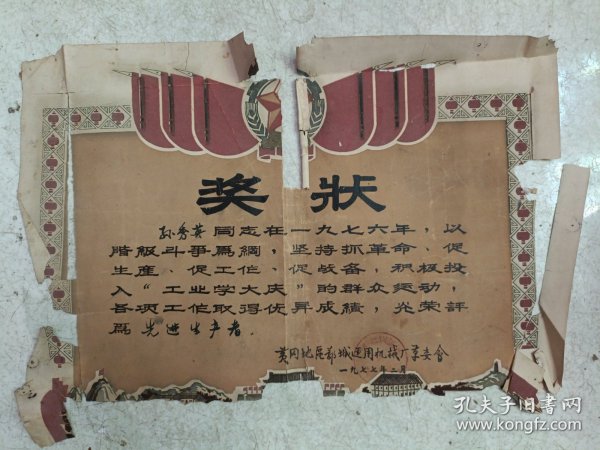 奖狀
孙秀英 同志在一九七六年，以
階級斗爭爲綱，坚持抓革命、促
生産、促工作、促战备，积极投
入“工业学大庆”的群众运动，
各项工作取得优异成績，光荣評
爲 先进生产者.
黄冈地区鄂城通用机械厂革委會
一九七七年二月
孔夫子旧书网
www.kongfz.com